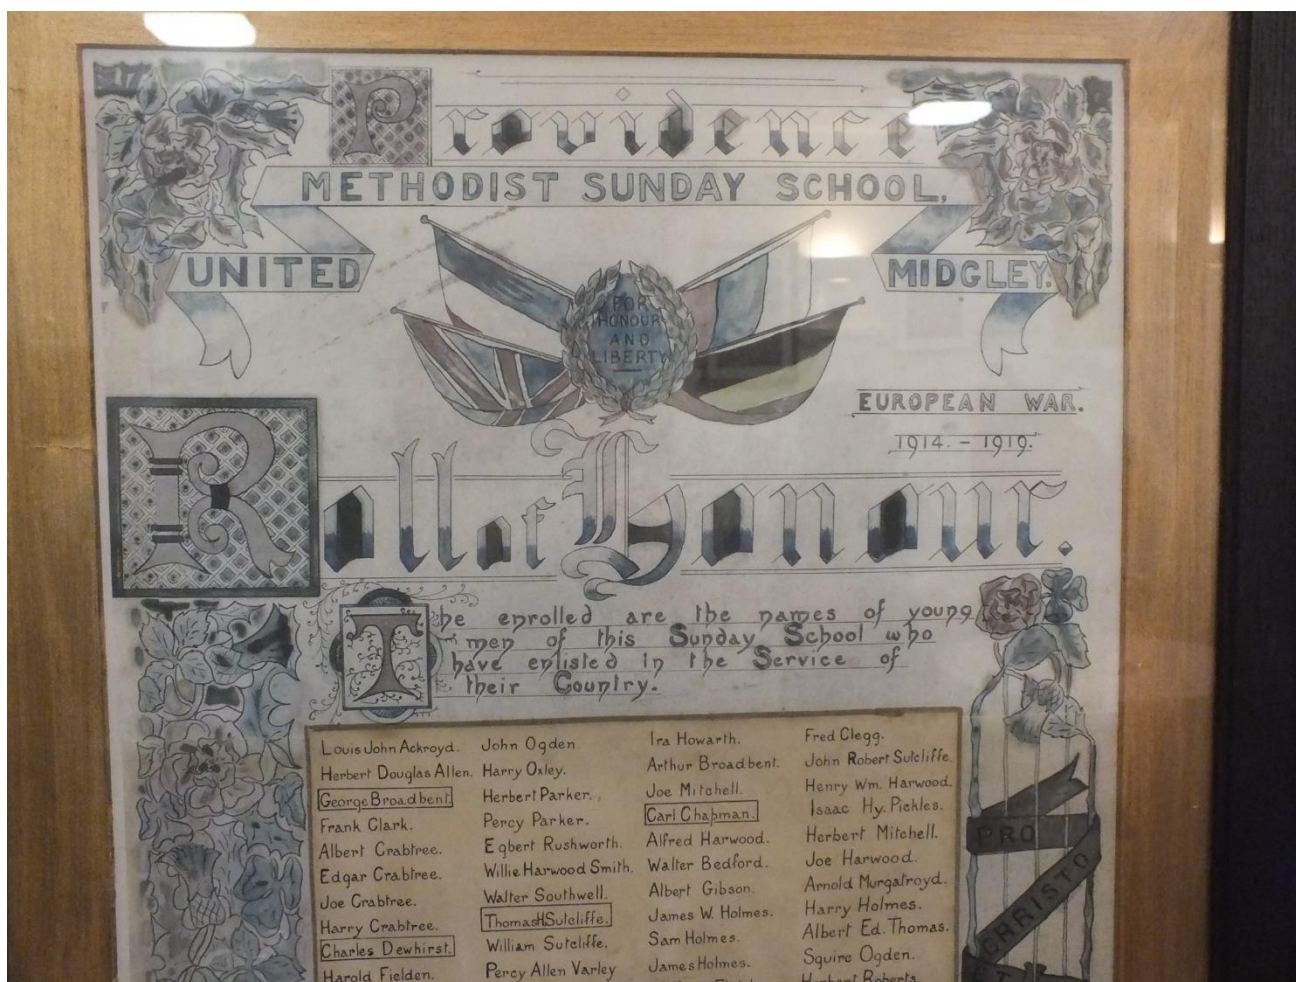 Providence
METHODIST SUNDAY SCHOOL,
UNITED
MIDGLEY.
FOR
HONOUR
AND
LIBERTY
EUROPEAN WAR.
1914. - 1919.
Roll of Honour.
The enrolled are the names of young
men of this Sunday School who
have enlisted in the Service of
their Country.
Louis John Ackroyd.
Herbert Douglas Allen.
George Broadbent.
Frank Clark.
Albert Crabtree.
Edgar Crabtree.
Joe Crabtree.
Harry Crabtree.
Charles Dewhirst.
Harold Fielden.
John Ogden.
Harry Oxley.
Herbert Parker.
Percy Parker.
Egbert Rushworth.
Willie Harwood Smith.
Walter Southwell.
Thomas H Sutcliffe.
William Sutcliffe.
Percy Allen Varley
Ira Howarth.
Arthur Broadbent.
Joe Mitchell.
Carl Chapman.
Alfred Harwood.
Walter Bedford.
Albert Gibson.
James W. Holmes.
Sam Holmes.
James Holmes.
Fred Clegg.
John Robert Sutcliffe.
Henry Wm. Harwood.
Isaac Hy. Pickles.
Herbert Mitchell.
Joe Harwood.
Arnold Murgatroyd.
Harry Holmes.
Albert Ed. Thomas.
Squire Ogden.
Herbert Roberts.
PRO
CHRISTO
ET